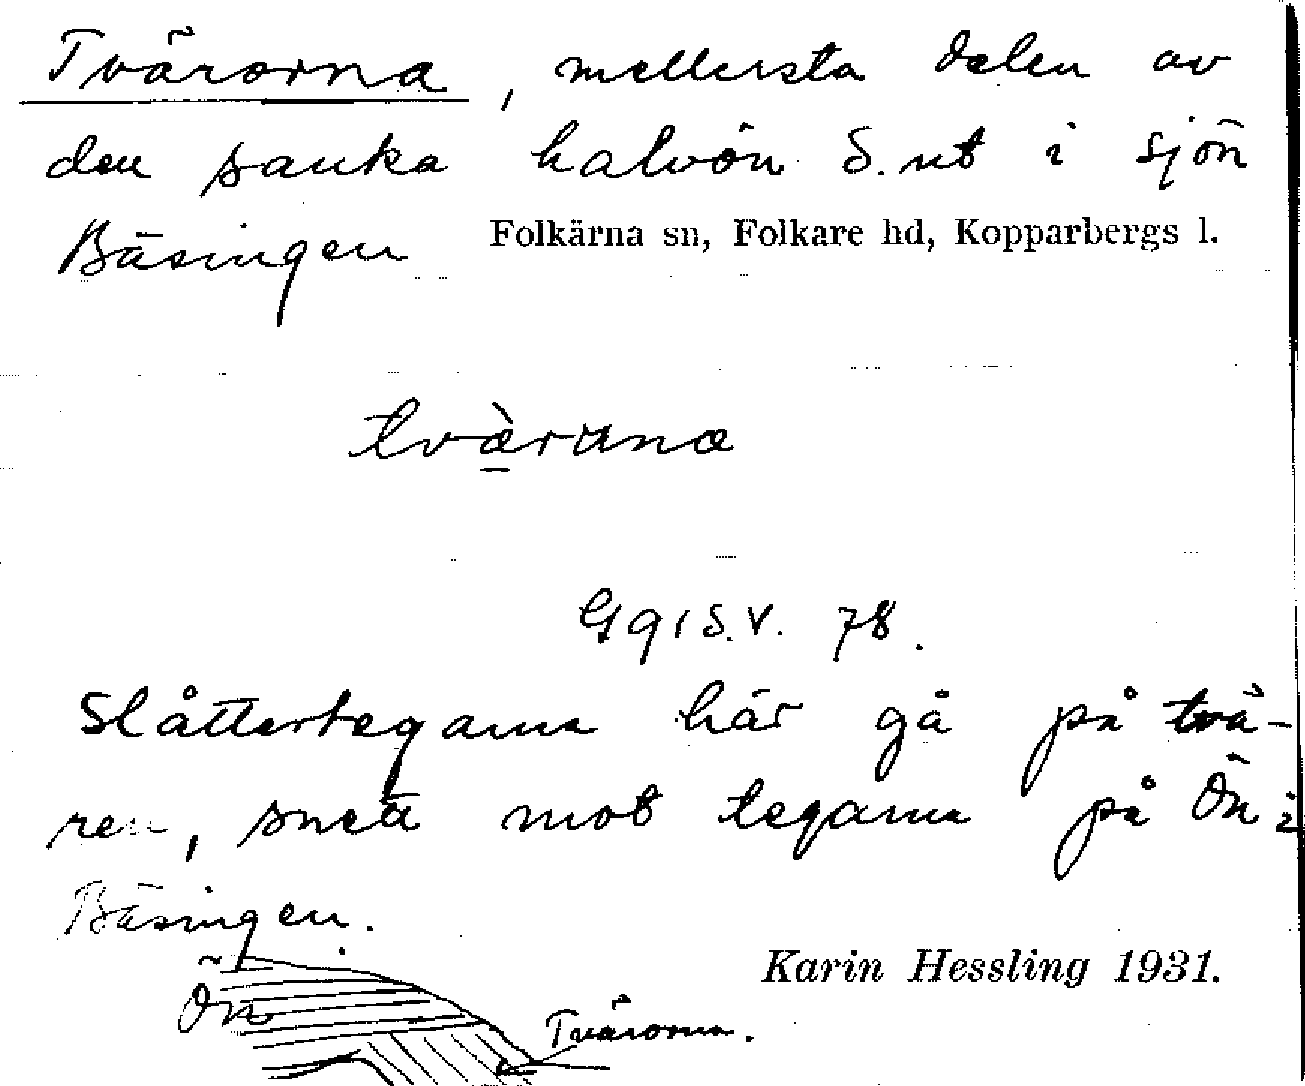 Tvärorna, mellersta delen av
den sanka halvön S. ut i sjön
Bäsingen Folkärna sn, Folkare hd, Kopparbergs l.
tvæ̀runa
Gg 1 S.V. 78.
Slåttertegarna här gå på tvä-
ren, snett mot tegarna på Ön i
Bäsingen.
Karin Hessling 1931.
Ön
Tvärorna.